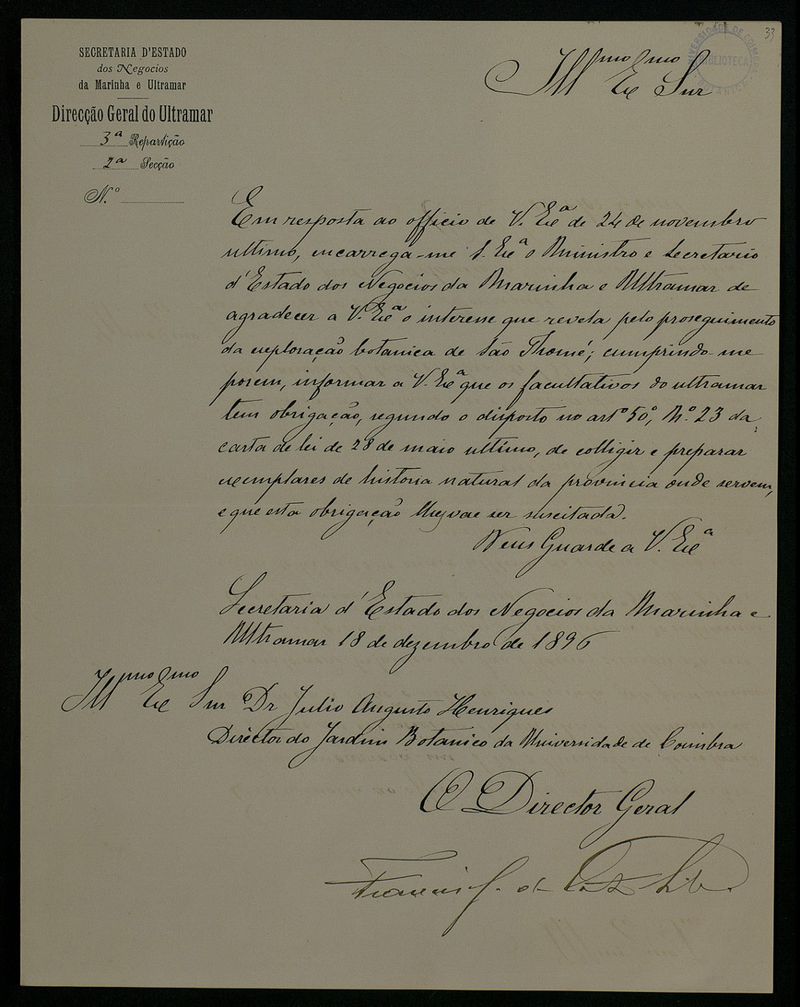 33
UNIVERSIDADE DE COIMBRA
BIBLIOTECA
BOTANICA
SECRETARIA D'ESTADO
dos Negocios
da Marinha e Ultramar
Direcção Geral do Ultramar
3ª Repartição
2ª Secção
N.º
Illmo Exmo Snr
Em resposta ao officio de V. Exª de 24 de novembro
ultimo, encarrega-me S. Exª o Ministro e Secretario
d'Estado dos Negocios da Marinha e Ultramar de
agradecer a V. Exª o interesse que revela pelo proseguimento
da exploração botanica de São Thomé; cumprindo-me
porem, informar a V. Exª que os facultativos do ultramar
tem obrigação, segundo o disposto no artº 50º, N.º 23 da
carta de lei de 28 de maio ultimo, de colligir e preparar
exemplares de historia natural da provincia onde servem,
e que esta obrigação lhes vae ser suscitada.
Deus Guarde a V. Exª
Secretaria d'Estado dos Negocios da Marinha e
Ultramar 18 de dezembro de 1896
Illmo Exmo Snr Dr Julio Augusto Henriques
Director do Jardim Botanico da Universidade de Coimbra
O Director Geral